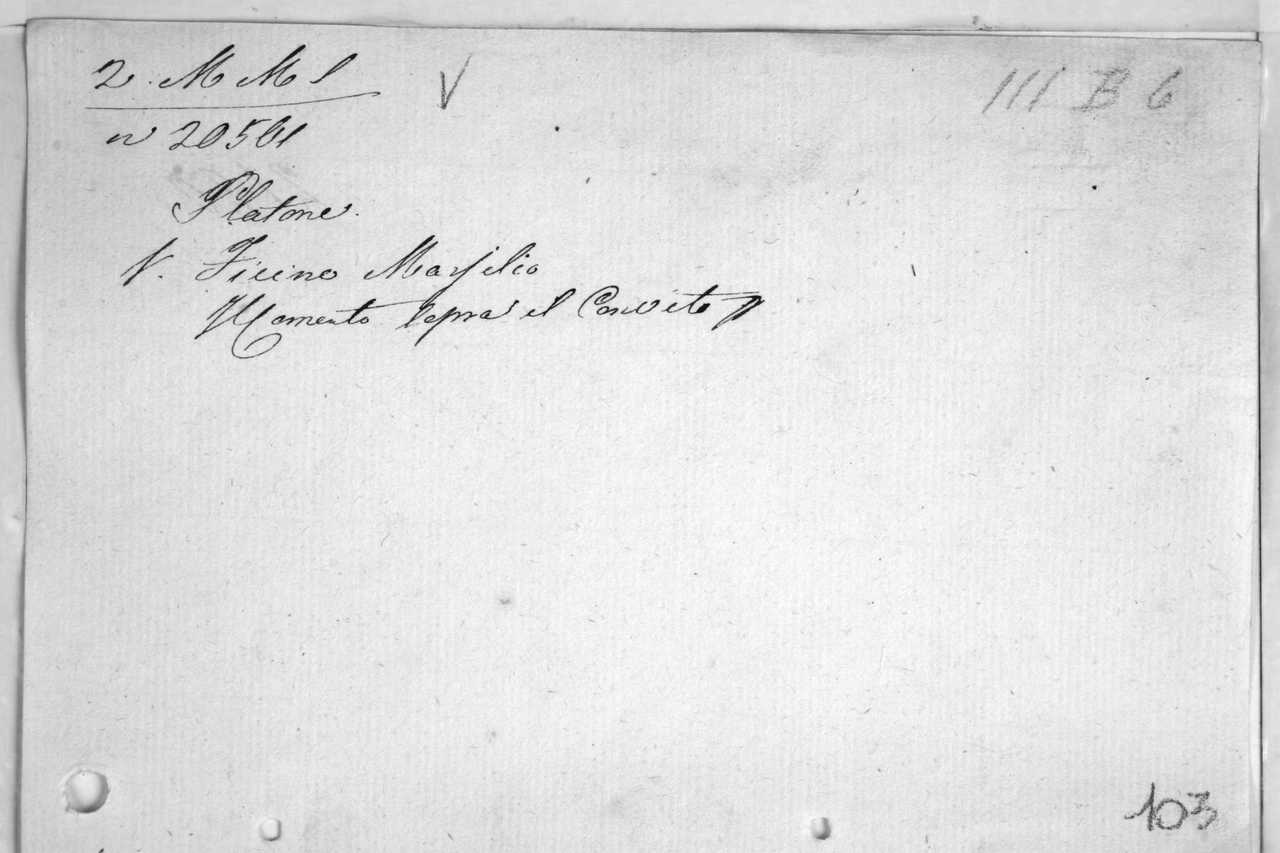 2. M M l V III B 6
n 20561
Platone.
V. Ficino Marsilio
sopra il Convito
103